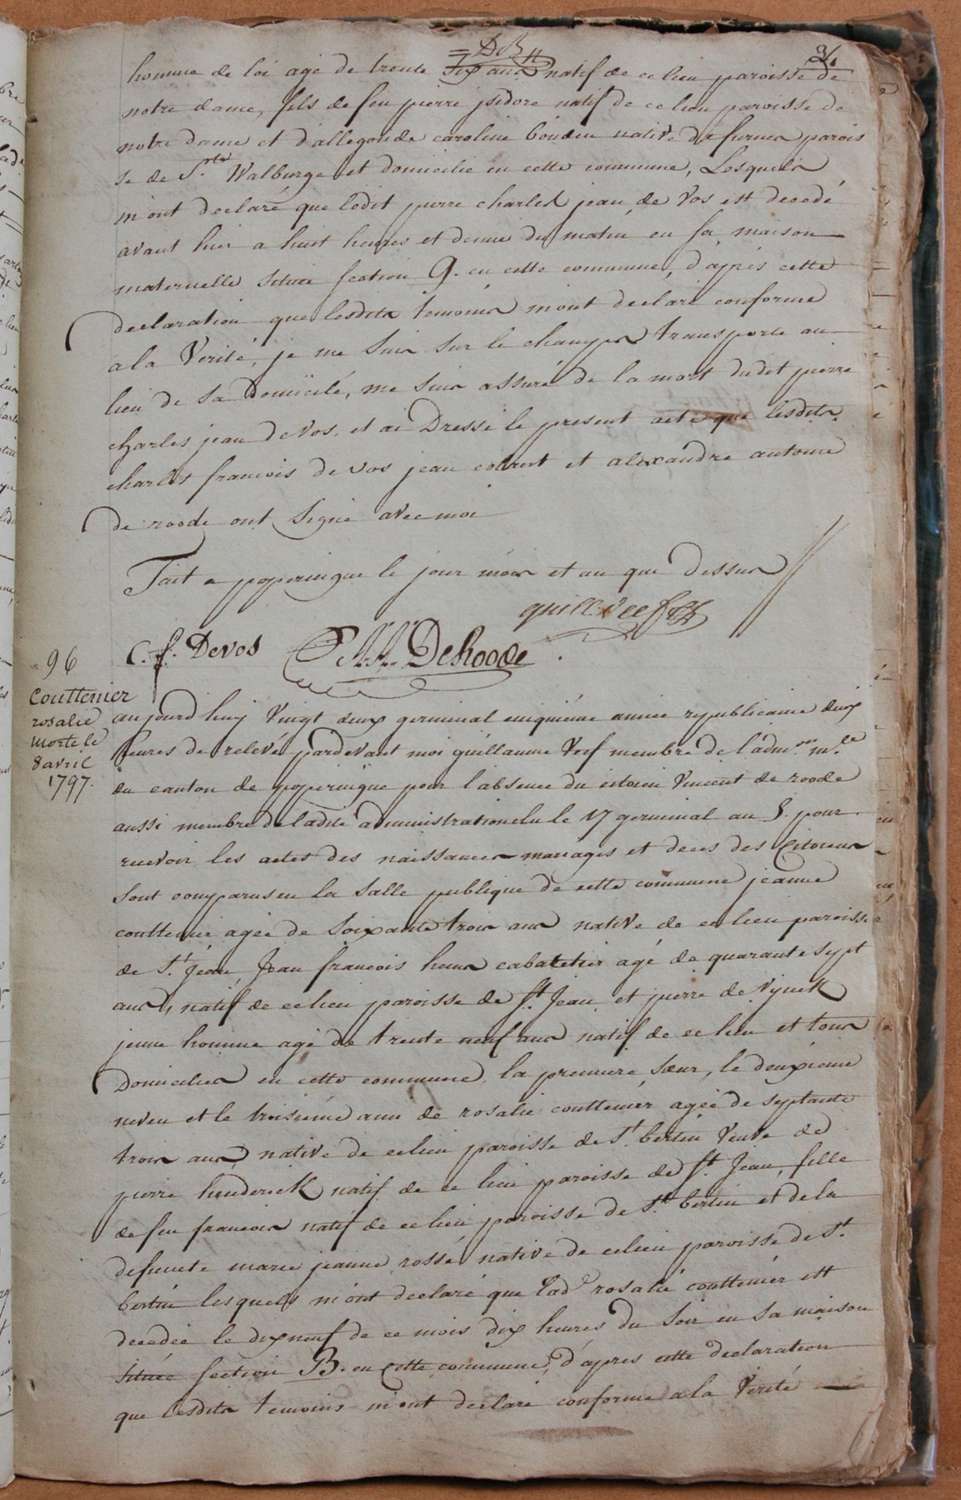 = D R 31.
homme de loi agé de trente six ans natif de ce lieu paroisse de
notre dame, fils de feu pierre jsidore natif de ce lieu paroisse de
notre dame et d'allegonde caroline natived de furnes parois
se de Ste Walburge et domicilié en cette commune, Lesquels
m'ont declaré que ledit pierre charles jean de vos est decedé
avant hier a huit heures et demie du matin en sa maison
maternelle située section G. en cette commune, d'après cette
declaration que lesdits temoins m'ont declaré conforme
a la Verité, je me suis sur le champs transporté au
lieu de sa domicile, me suis assuré de la mort dudit pierre
charles jean de vos. et ai Dressé le present acte que lesdits
charles francois de vos jean et alexandre antoine
de roode ont signé avec moi
Fait a poperingue le jour mois et an que dessus
C. f. Devos DeRoode
96
Couttenier
rosalie
morte le
8 avril
1797.
aujourd huy Vingt deux germinal cinquième année republicaine deux
heures de relevée pardevant moi guillaume membre de l'adm.on m.le
du canton de poperingue pour l'absence du citoien Vincent de roode
aussi membre de ladite administration elu le 17 germinal an 5. pour
recevoir les actes des naissances mariages et deces des Citoiens
sont comparus en la salle publique de cette commune jeanne
couttenier agée de soixante trois ans native de ce lieu paroisse
de St. Jean, Jean francois cabaretier agé de quarante sept
ans, natif de ce lieu paroisse de St Jean et pierre de
jeune homme agé de trente neuf ans natif de ce lieu et tous
Domiciliés en cette commune, la premiere sœur, le deuxieme
neveu et le troisiéme ami de rosalie couttenier agée de septante
trois ans, native de ce lieu paroisse de St bertin Veuve de
pierre henderick natif de ce lieu paroisse de St Jean, fille
de feu francois natif de ce lieu paroisse de St bertin et de la
defuncte marie jeanne rossé native de ce lieu paroisse de St.
bertin lesquels m'ont declaré que lad.e rosalie couttenier est
decedée le dixneuf de ce mois dix heures du soir en sa maison
située section B. en cette commune, d'après cette declaration
que lesdits temoins m'ont declaré conforme a la Verité